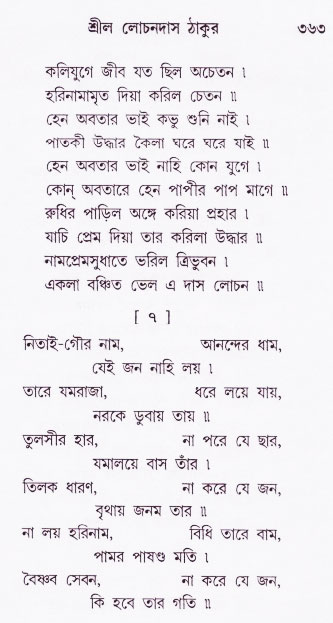 শ্রীল লোচনদাস ঠাকুর ৩৬৩
কলিযুগে জীব যত ছিল অচেতন ।
হরিনামামৃত দিয়া করিল চেতন ॥
হেন অবতার ভাই কভু শুনি নাই ।
পাতকী উদ্ধার কৈলা ঘরে ঘরে যাই ॥
হেন অবতার ভাই নাহি কোন যুগে ।
কোন্ অবতারে হেন পাপীর পাপ মাগে ॥
রুধির পাড়িল অঙ্গে করিয়া প্রহার ।
যাচি প্রেম দিয়া তার করিলা উদ্ধার ॥
নামপ্রেমসুধাতে ভরিল ত্রিভুবন ।
একলা বঞ্চিত ভেল এ দাস লোচন ॥
[ ৭ ]
নিতাই-গৌর নাম, আনন্দের ধাম,
যেই জন নাহি লয় ।
তারে যমরাজা, ধরে লয়ে যায়,
নরকে ডুবায় তায় ॥
তুলসীর হার, না পরে যে ছার,
যমালয়ে বাস তাঁর ।
তিলক ধারণ, না করে যে জন,
বৃথায় জনম তার ॥
না লয় হরিনাম, বিধি তারে বাম,
পামর পাষণ্ড মতি ।
বৈষ্ণব সেবন, না করে যে জন,
কি হবে তার গতি ॥